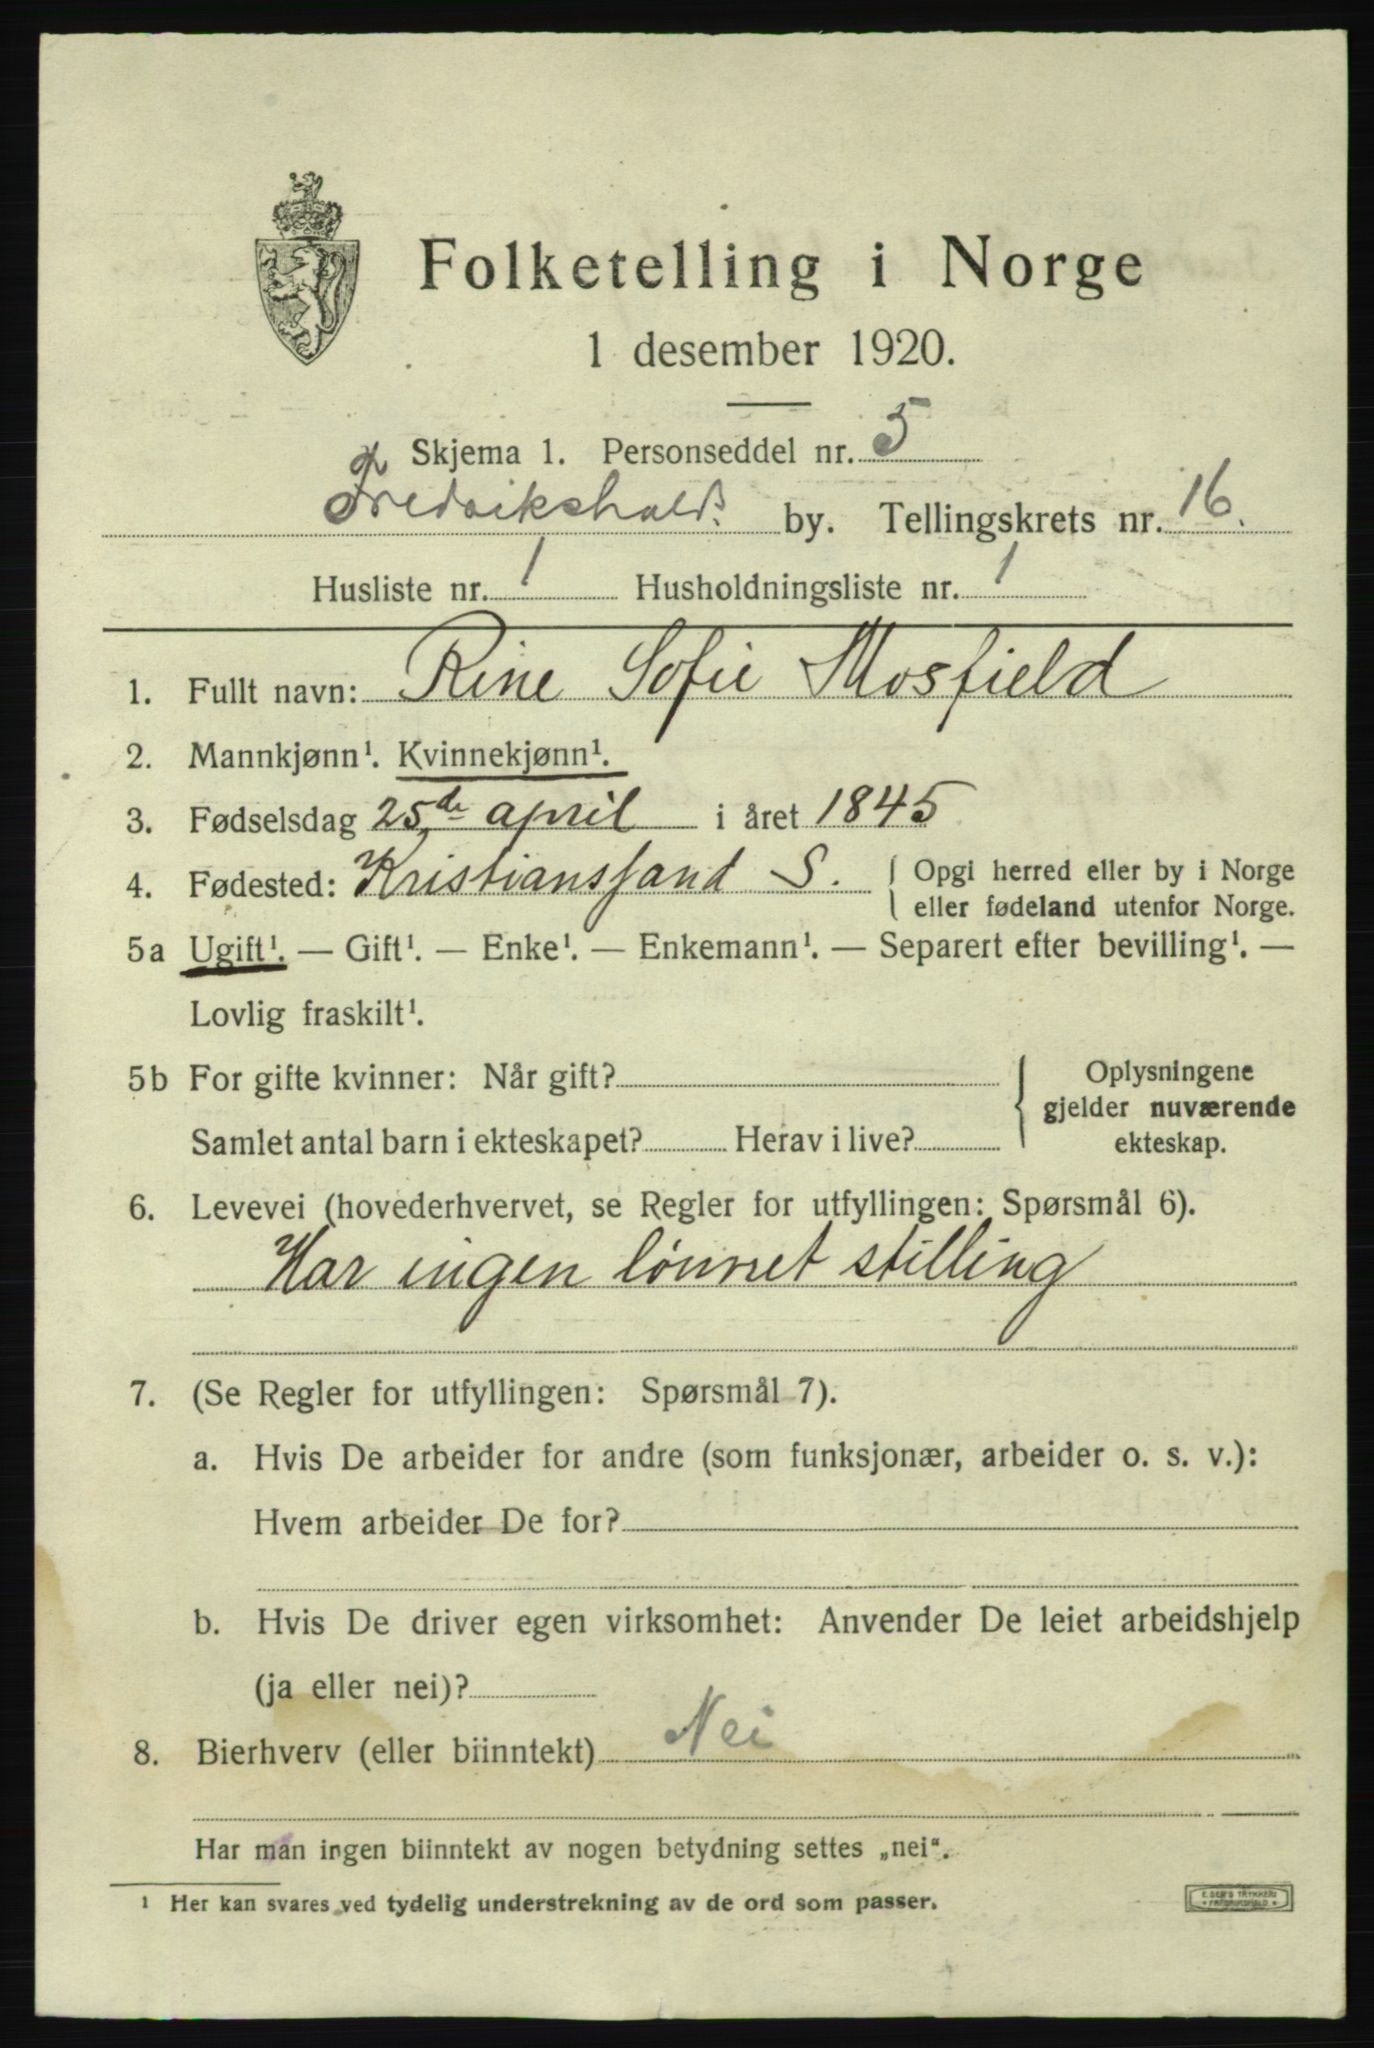 Folketelling i Norge
1 desember 1920.
Skjema 1. Personseddel nr. 5
Fredrikshald. by. Tellingskrets nr. 16.
Husliste nr. 1 Husholdningsliste nr. 1
1. Fullt navn: Rine Sofie Mosfield
2. Mannkjønn¹. Kvinnekjønn¹.
3. Fødselsdag 25de april i året 1845
4. Fødested: Kristianssand S. { Opgi herred eller by i Norge
eller fødeland utenfor Norge.
5a Ugift¹. — Gift¹. — Enke¹. — Enkemann¹. — Separert efter bevilling¹. —
Lovlig fraskilt¹.
5b For gifte kvinner: Når gift? { Oplysningene
gjelder nuværende
Samlet antal barn i ekteskapet? Herav i live? ekteskap.
6. Levevei (hovederhvervet, se Regler for utfyllingen: Spørsmål 6).
Har ingen lønnet stilling
7. (Se Regler for utfyllingen: Spørsmål 7).
a. Hvis De arbeider for andre (som funksjonær, arbeider o. s. v.):
Hvem arbeider De for?
b. Hvis De driver egen virksomhet: Anvender De leiet arbeidshjelp
(ja eller nei)?
8. Bierhverv (eller biinntekt) Nei
Har man ingen biinntekt av nogen betydning settes „nei“.
¹ Her kan svares ved tydelig understrekning av de ord som passer.
E. SEM'S TRYKKERI
FREDRIKSHALD